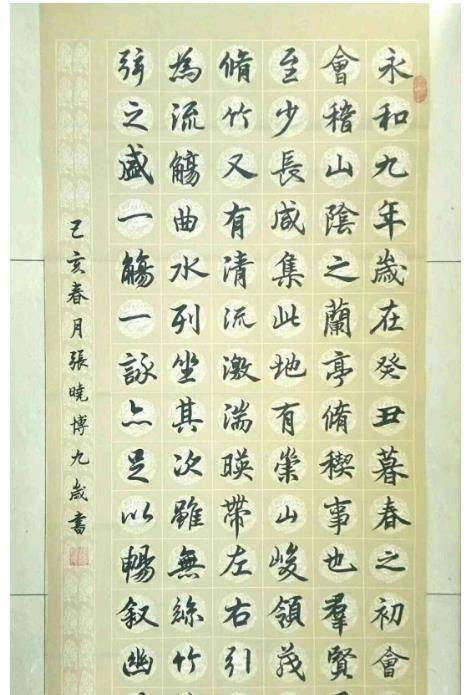 永和九年歲在癸丑暮春之初會
會稽山陰之蘭亭脩稧事也羣賢
至少長咸集此地有崇山峻領茂
脩竹又有清流激湍暎帶左右引
為流觴曲水列坐其次雖無絲竹
弦之盛一觴一詠亦足以暢叙幽
己亥春月張曉博九歲書